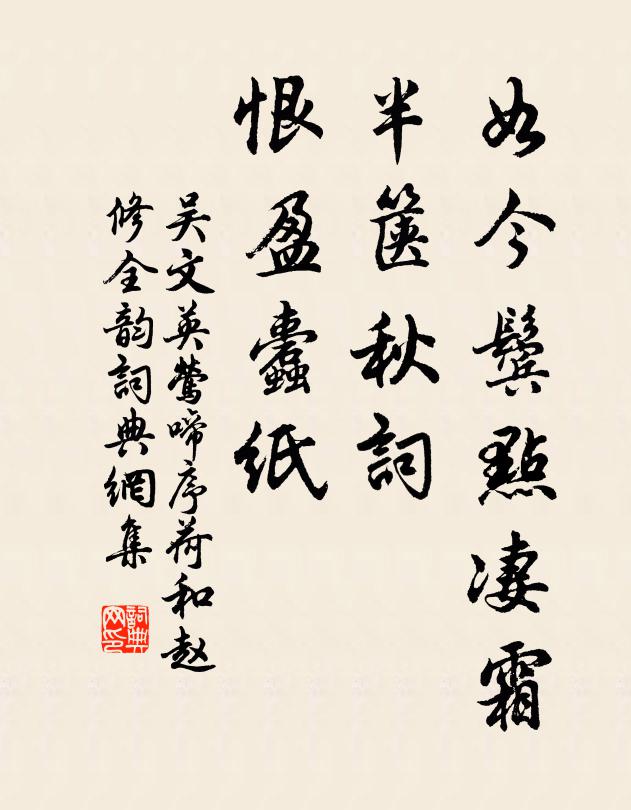 如今鬓點凄霜
半箧秋詞
恨盈蠹纸
吴文英莺啼序荷和赵
修全韵詞典網集
詞典网印